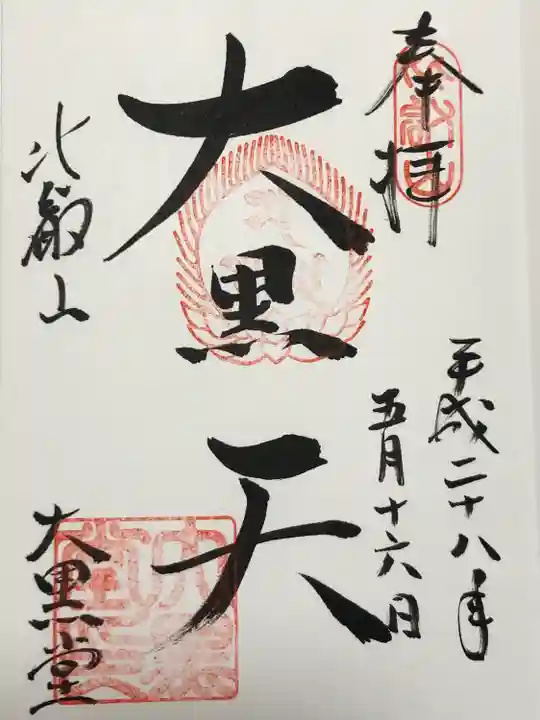 奉拝
平成二十八年
五月十六日
大黒天
比叡山
大黒堂